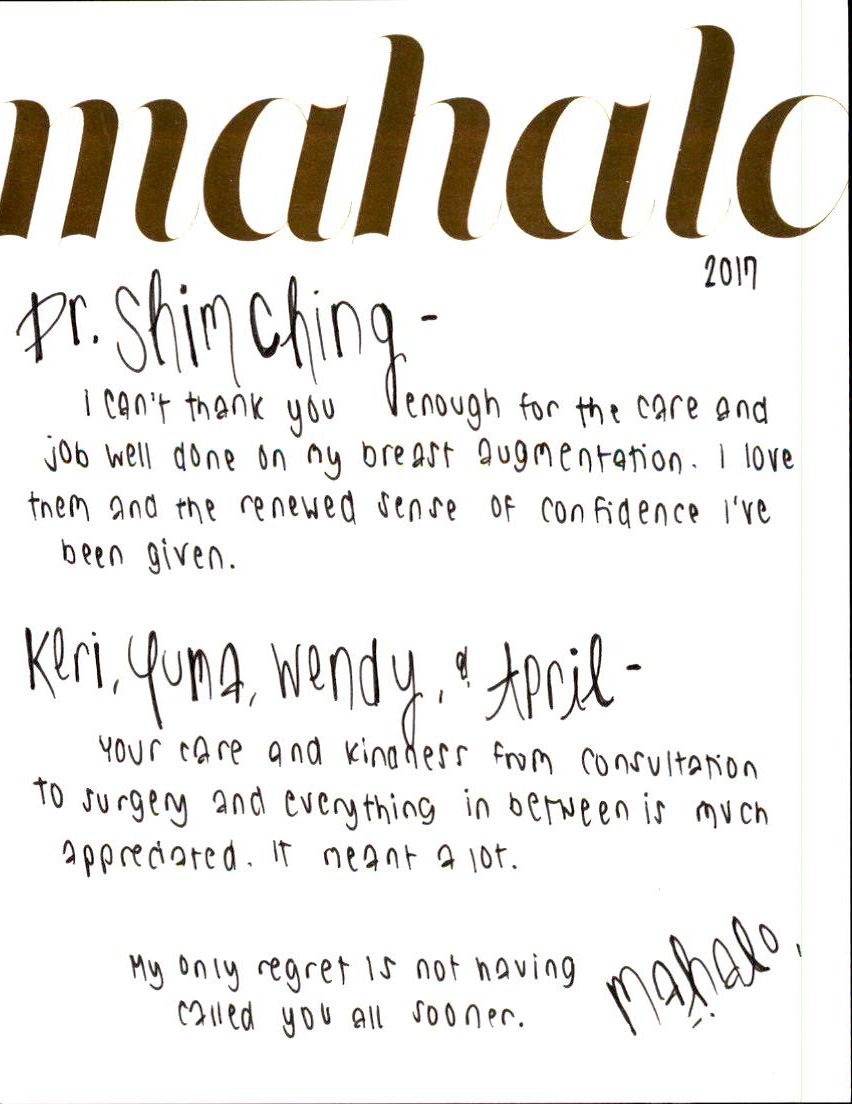 mahalo
2017
Dr. Shim Ching -
I can't thank you enough for the care and
job well done on my breast augmentation. I love
them and the renewed sense of confidence I've
been given.
Keri, Yuma, Wendy, & April -
Your care and kindness from consultation
to surgery and everything in between is much
appreciated. It meant a lot.
My only regret is not having
called you all sooner.
Mahalo,